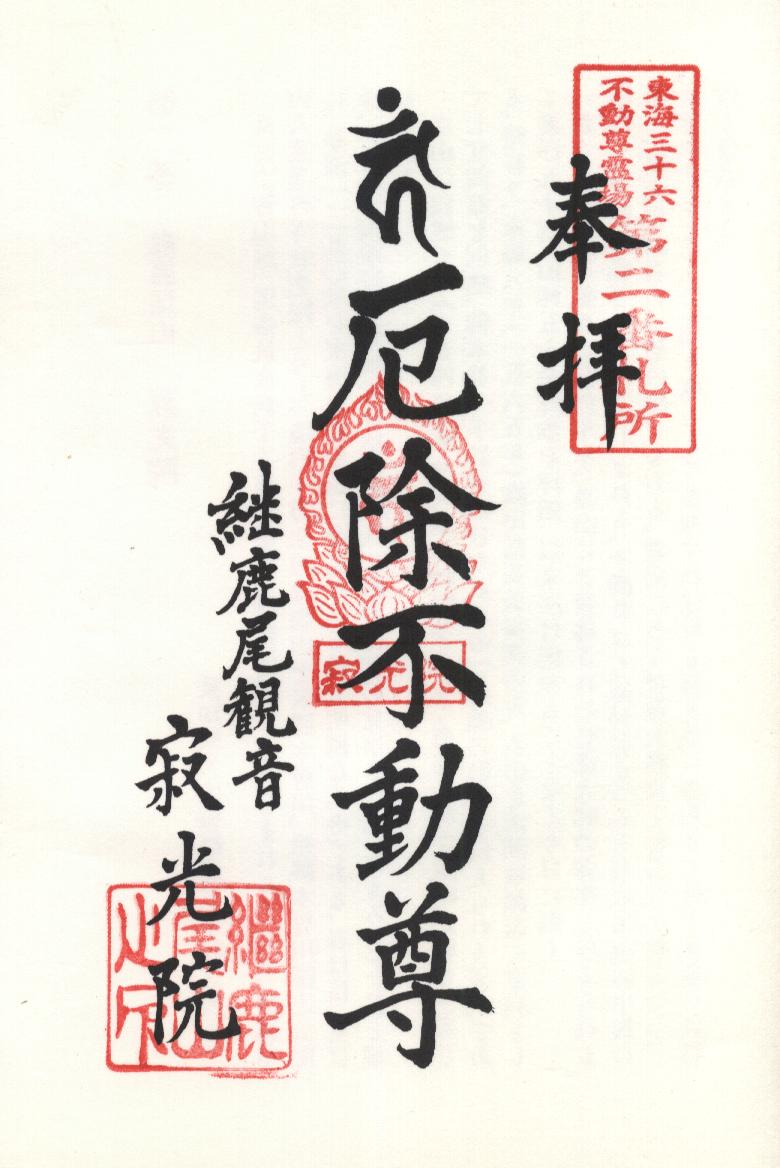 東海三十六
不動尊霊場
第二番札所
奉拝
厄除不動尊
寂光院
継鹿尾観音
寂光院
継鹿
尾山
之印